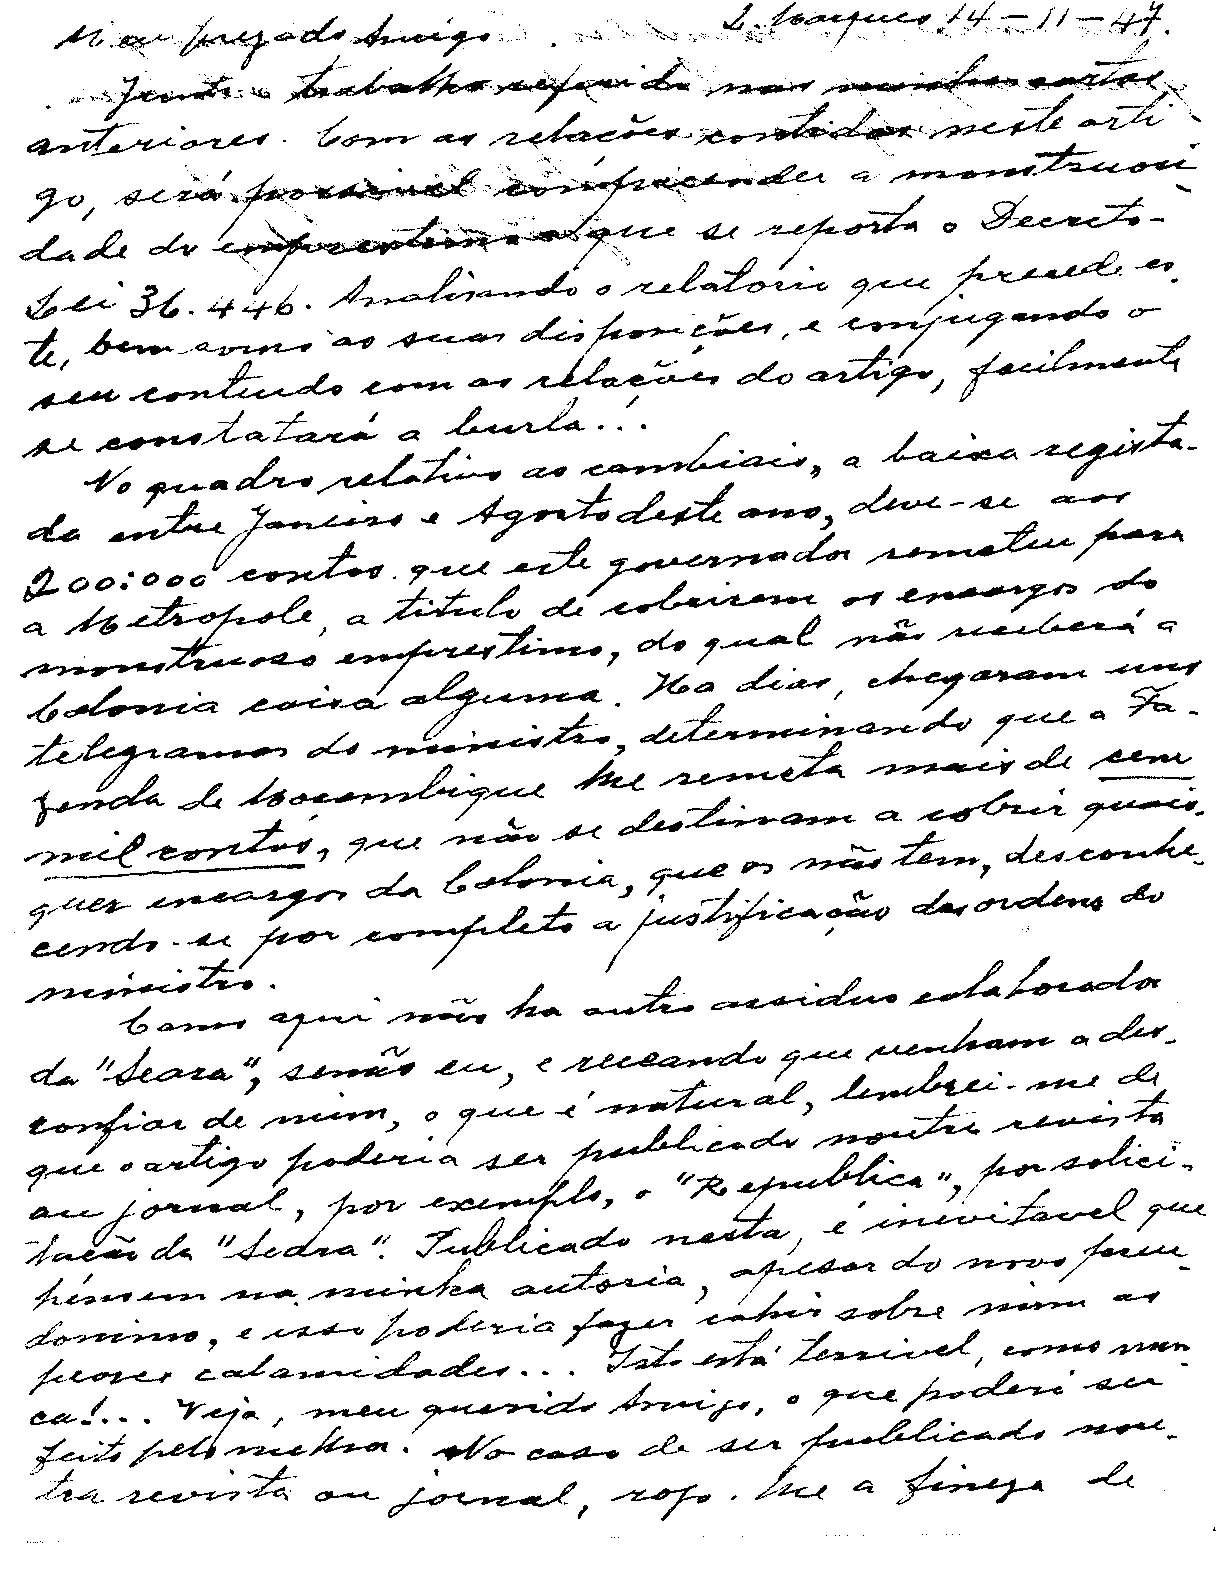 L. Marques, 14-11-47.
Meu prezado Amigo
Junto o trabalho referido nas minhas cartas
anteriores. Com as relações contidas neste arti-
go, será possivel compreender a monstruosi-
dade do emprestimo a que se reporta o Decreto-
Lei 36.446. Analisando o relatorio que precede es-
te, bem como as suas disposições, e conjugando o
seu conteudo com as relações do artigo, facilmente
se constatará a burla...
No quadro relativo as cambiais, a baixa regista-
da entre Janeiro e Agosto deste ano, deve-se aos
200:000 contos que este governador remeteu para
a Metropole, a titulo de cobrirem os encargos do
monstruoso emprestimo, do qual não receberá a
Colonia coisa alguma. Ha dias, chegaram uns
telegramas do ministro, determinando que a Fa-
zenda de Moçambique lhe remeta mais de cem
mil contos, que não se destinam a cobrir quais-
quer encargos da Colonia, que os não tem, desconhe-
cendo-se por completo a justificação das ordens do
ministro.
Como aqui não ha outro assiduo colaborador
da "Seara", senão eu, e receando que venham a des-
confiar de mim, o que é natural, lembrei-me de
que o artigo poderia ser publicado noutra revista
ou jornal, por exemplo, o "Republica", por solici-
tação da "Seara". Publicado nesta, é inevitavel que
pensem na minha autoria, apesar do novo pseu-
donimo, e isso poderia fazer cahir sobre mim as
peores calamidades... Isto está terrivel, como nun-
ca!... Veja, meu querido Amigo, o que poderá ser
feito pelo melhor. No caso de ser publicado nou-
tra revista ou jornal, rogo-lhe a fineza de